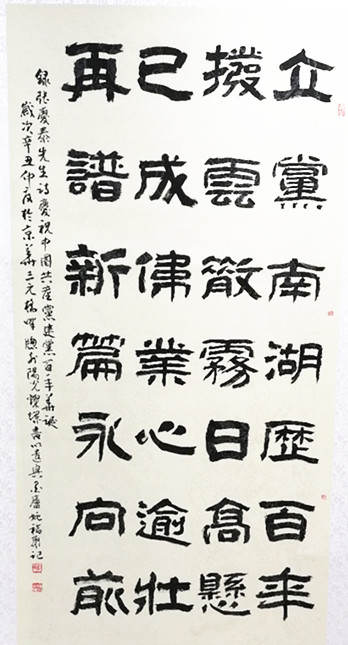 立黨南湖歷百年
撥雲散霧日高懸
已成偉業心逾壯
再譜新篇永向前
錄張慶泰先生詩慶祝中國共產黨建黨百年華誕
歲次辛丑仲夏於京華三元橋畔牕外陽光燦爛書以遣興